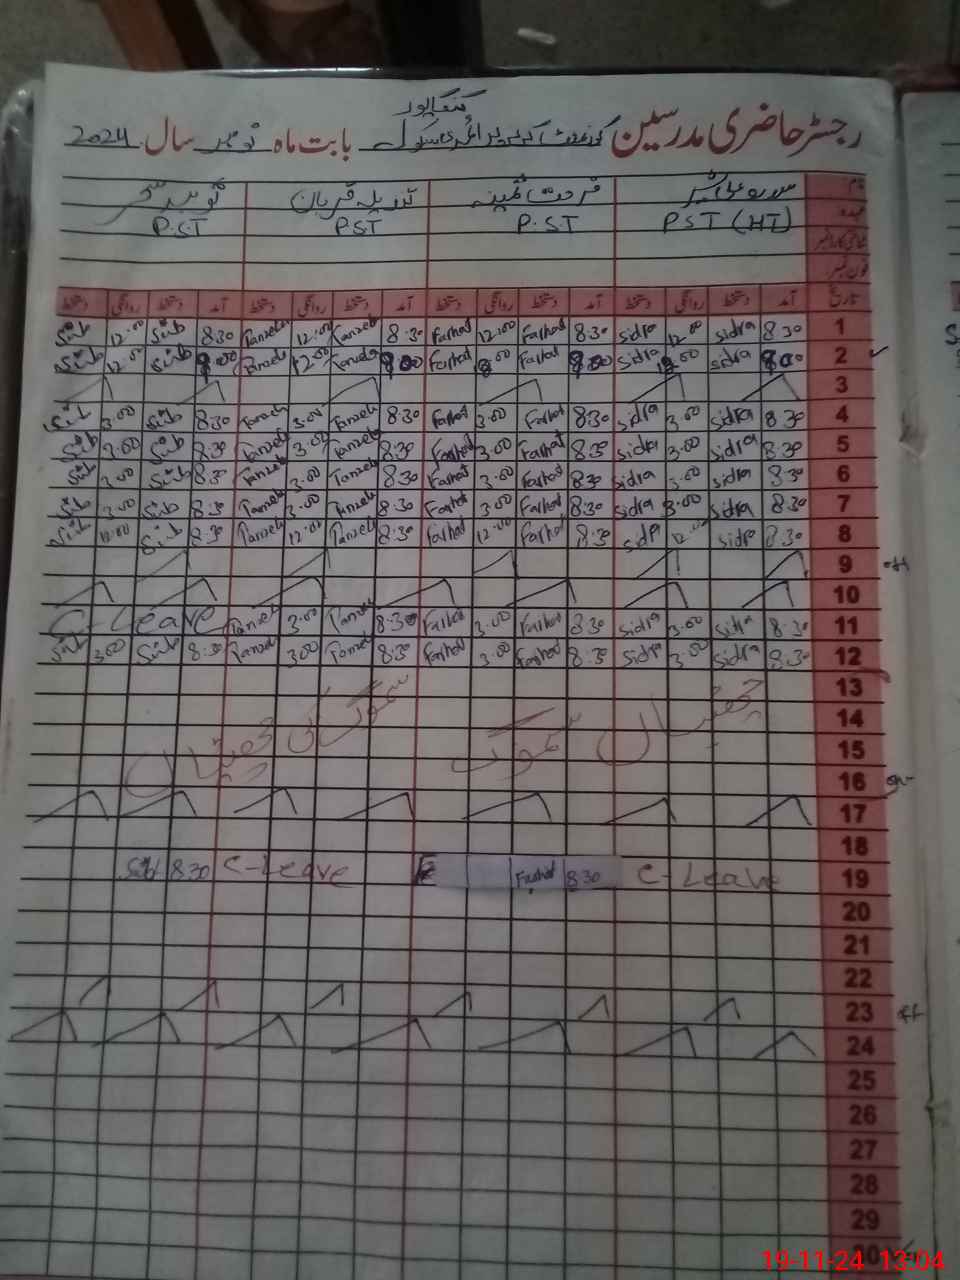 گنگاپور
رجسٹر حاضری مدرسین گورنمنٹ گرلز پرائمری سکول بابت ماہ نومبر سال 2024
نام فرحت ثمینہ تنزیلہ قربان
عہدہ PST (HT) P.S.T PST P.S.T
شناختی کارڈ نمبر
فون نمبر
تاریخ آمد دستخط روانگی دستخط آمد دستخط روانگی دستخط آمد دستخط روانگی دستخط آمد دستخط روانگی دستخط
1 8.30 sidra 12.00 sidra 8.30 Farhat 12.00 Farhat 8.30 Tanzela 12.00 Tanzela 8.30 12.00
2 sidra sidra Farhat Farhat Tanzela 12.00 Tanzela 12.00
3
4 8.30 sidra 3.00 sidra 8.30 Farhat 3.00 Farhat 8.30 Tanzela 3.00 Tanzela 8.30 3.00
5 8.30 sidra 3.00 sidra 8.30 Farhat 3.00 Farhat 8.30 Tanzela 3.00 Tanzela 8.30 3.00
6 8.30 sidra 3.00 sidra 8.30 Farhat 3.00 Farhat 8.30 Tanzela 3.00 Tanzela 8.30 3.00
7 8.30 sidra 3.00 sidra 8.30 Farhat 3.00 Farhat 8.30 Tanzela 3.00 Tanzela 8.30 3.00
8 8.30 sidra 12.00 sidra 8.30 Farhat 12.00 Farhat 8.30 Tanzela 12.00 Tanzela 8.30 12.00
9 off
10
11 8.30 sidra 3.00 sidra 8.30 Farhat 3.00 Farhat 8.30 Tanzela 3.00 Tanzela C-Leave
12 8.30 sidra 3.00 sidra 8.30 Farhat 3.00 Farhat 8.30 Tanzela 3.00 Tanzela 8.30 3.00
13
14
15
سموگ چھٹیاں سموگ کی چھٹیاں
16
17
18
19 C-Leave 8.30 Farhat C-Leave 8.30
20
21
22
23 off
24
25
26
27
28
29
30
19-11-24 13:04